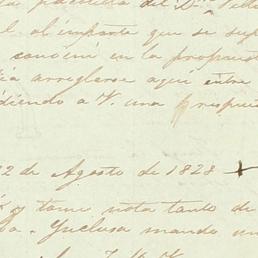 la practica del Dn
el al importe que se sup
convení en la propuest
arreglarse aqui entre
diendo a V. una respue
22 de Agosto de 1828
y tome nota tanto de
Inclusa mando un